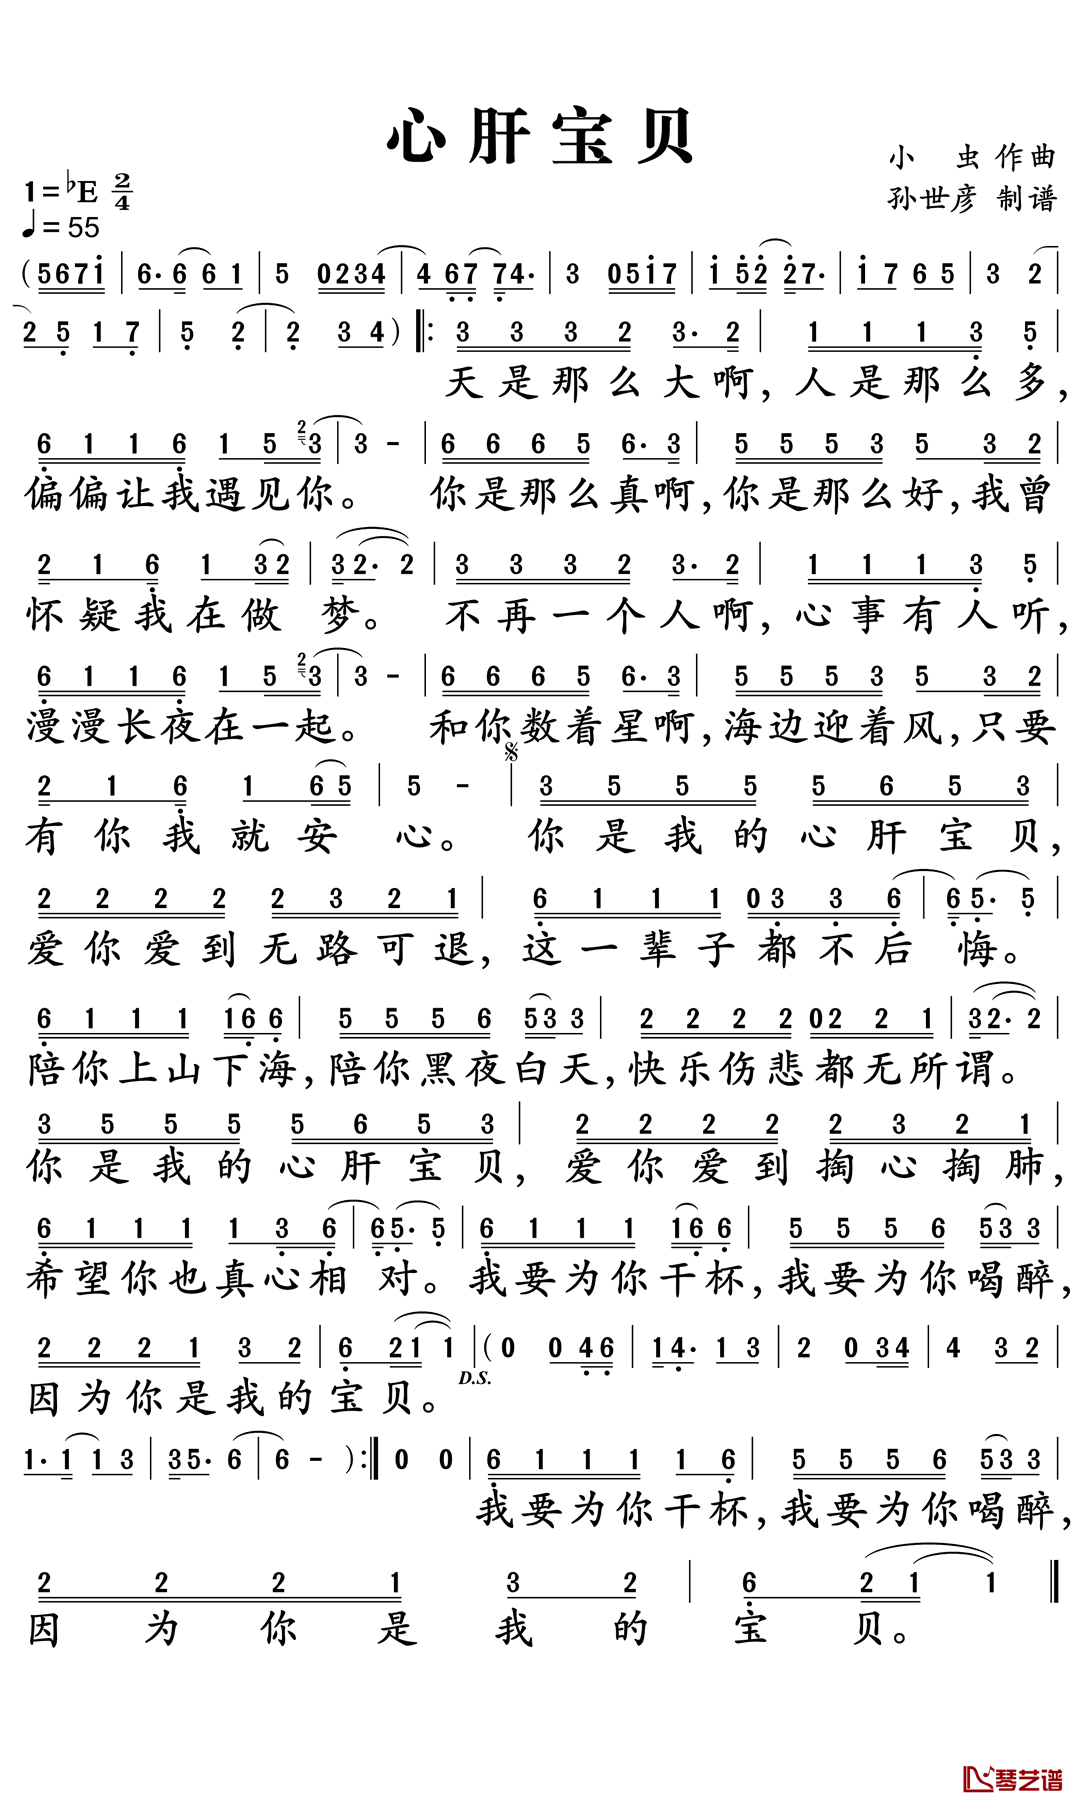 心肝宝贝
小 虫 作曲
1=♭E 2/4
孙世彦 制谱
♩= 55
( 5 6 7 1 | 6· 6 6 1 | 5 0 2 3 4 | 4 6 7 7 4· | 3 0 5 1 7 | 1 5 2 2 7· | 1 7 6 5 | 3 2 |
2 5 1 7 | 5 2 | 2 3 4 ) ‖: 3 3 3 2 3· 2 | 1 1 1 3 5 |
天是那么大啊，人是那么多，
6 1 1 6 1 5 2 3 | 3 - | 6 6 6 5 6· 3 | 5 5 5 3 5 3 2 |
偏偏让我遇见你。 你是那么真啊，你是那么好，我曾
2 1 6 1 3 2 | 3 2· 2 | 3 3 3 2 3· 2 | 1 1 1 3 5 |
怀疑我在做 梦。 不再一个人啊，心事有人听，
6 1 1 6 1 5 2 3 | 3 - | 6 6 6 5 6· 3 | 5 5 5 3 5 3 2 |
漫漫长夜在一起。 和你数着星啊，海边迎着风，只要
2 1 6 1 6 5 | 5 - | 3 5 5 5 5 6 5 3 |
有你我就安 心。 你是我的心肝宝贝，
2 2 2 2 2 3 2 1 | 6 1 1 1 0 3 3 6 | 6 5· 5 |
爱你爱到无路可退，这一辈子都不后 悔。
6 1 1 1 1 6 6 | 5 5 5 6 5 3 3 | 2 2 2 2 0 2 2 1 | 3 2· 2 |
陪你上山下海，陪你黑夜白天，快乐伤悲都无所谓。
3 5 5 5 5 6 5 3 | 2 2 2 2 2 3 2 1 |
你是我的心肝宝贝，爱你爱到掏心掏肺，
6 1 1 1 1 3 6 | 6 5· 5 | 6 1 1 1 1 6 6 | 5 5 5 6 5 3 3 |
希望你也真心相 对。我要为你干杯，我要为你喝醉，
2 2 2 1 3 2 | 6 2 1 1 | ( 0 0 4 6 | 1 4· 1 3 | 2 0 3 4 | 4 3 2 |
D.S.
因为你是我的宝贝。
1· 1 1 3 | 3 5· 6 | 6 - ) :‖ 0 0 | 6 1 1 1 1 6 | 5 5 5 6 5 3 3 |
我要为你干杯，我要为你喝醉，
2 2 2 1 3 2 | 6 2 1 1 ‖
因为你是我的宝贝。
琴艺谱